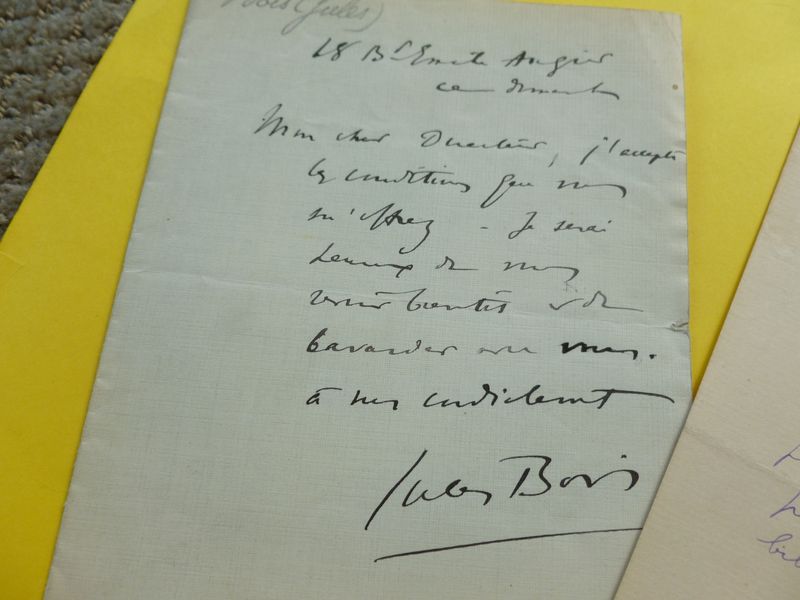 Bois (Jules)
18 Bd Emile Augier
ce dimanche
Mon cher Directeur, j'accepte
les conditions que vous
m'offrez - Je serai
heureux de vous
revoir bientôt & de
bavarder avec vous.
à vous cordialement
Jules Bois